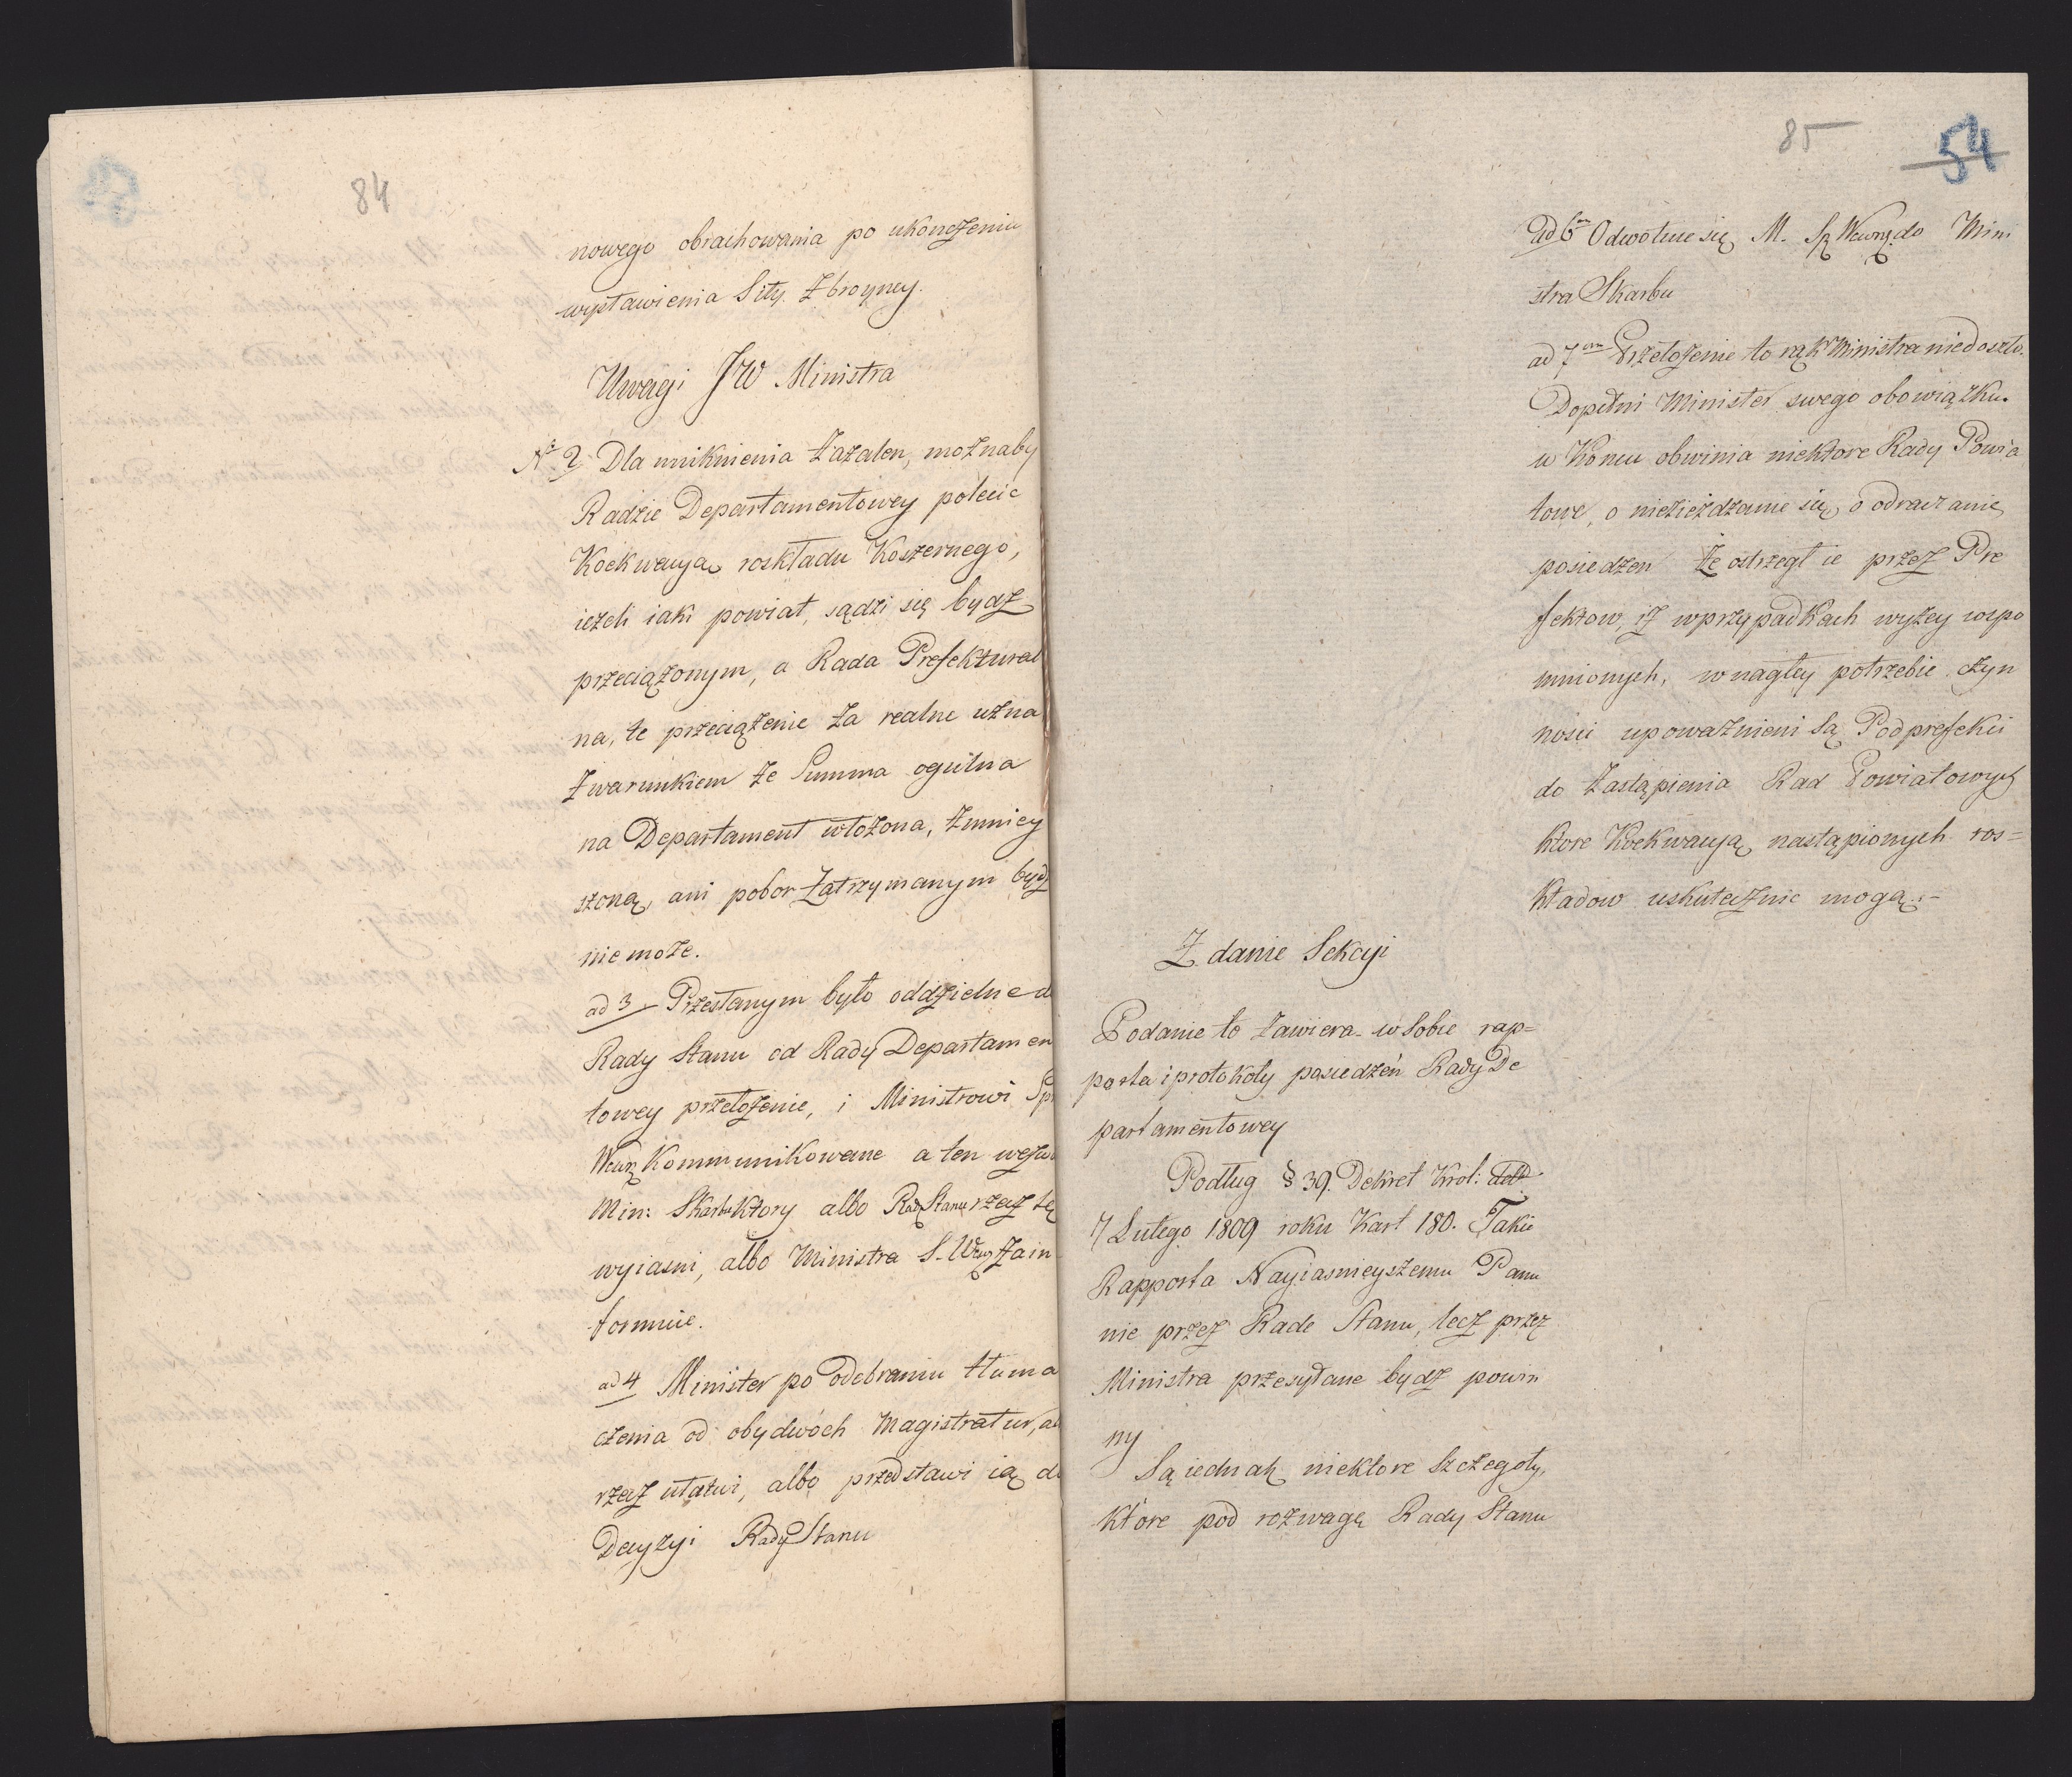 84
nowego obrachowania po ukonczeniu
wystawienia Siły Zbroyney.
Uwagi JW Ministra
Nº 2 Dla uniknienia Zazalen, możnaby
Radzie Departamentowey polecic
Koekwacyą roskładu Koszernego,
ieżeli iaki powiat, sądzi się bydz
przeciążonym, a Rada Prefektural
na, te przeciążenie za realne uzna
z warunkiem że Summa ogulna
na Departament włożona, zmniey
szoną, ani pobor Zatrzymanym bydz
nie może.
ad 3 Przesłanym było oddzielne d
Rady Stanu od Rady Departamen
towey przełożenie, i Ministrowi Spr
Wewn Kommunikowane a ten wezwa
Min: Skarbu Ktory albo Rady Stanu rzecz tę
wyiasni, albo Ministra S. Wew Zain
formuie.
ad 4 Minister po odebraniu tłuma
czenia od obydwóch Magistratur, al
rzecz ułatwi, albo przedstawi ią do
Decyzyi Rady Stanu
85
54
ad 6m Odwołuie się M. Sp Wewnę do Mini
stra Skarbu
ad 7m Przełożenie to rąk Ministra niedoszło.
Dopełni Minister swego obowiązku.
w Koncu obwinia niektore Rady Powia
towe, o niezieżdzanie się, o odraczanie
posiedzen że ostrzegł ie przez Pre
fektow, iż w przypadkach wyżey wspo
mnionych, w nagłey potrzebie czyn
nosci upoważnieni są Podprefekci
do Zastąpienia Rad Powiatowych
ktore Koekwacyą nastąpionych ros=
kładow uskutecznic mogą.–
Zdanie Sekcyi
Podanie to zawiera w sobie rap=
porta i protokoły posiedzeń Rady De
partamentowey
Podług § 39. Dekret Krol:
7 Lutego 1809 roku Kart 180. Takie
Rapporta Nayiasnieyszemu Panu
nie przez Rade Stanu, lecz przez
Ministra przesyłane bydz powin
ny
Są iednak niektore Szczegoły,
które pod rozwagę Rady Stanu